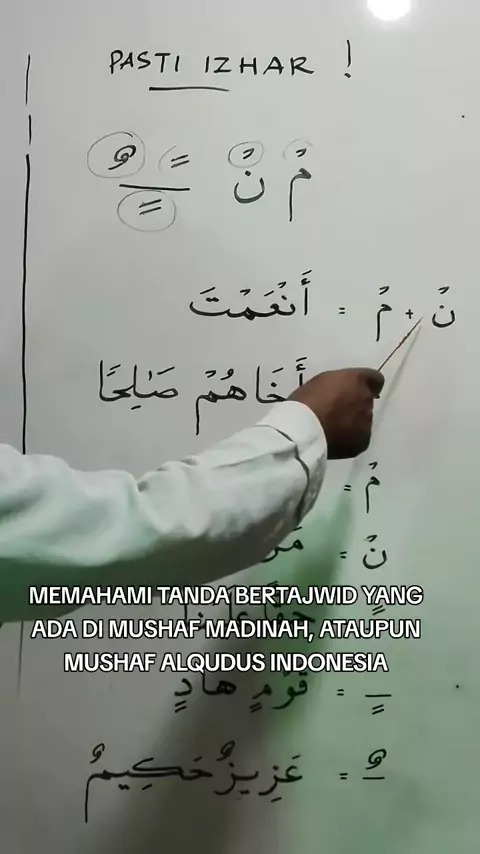 PASTI IZHAR !
مْ نْ ـًـ ـٍـ ـٌـ
نْ + مْ = أَنْعَمْتَ
أَخَاهُمْ صَـٰلِحًا
مْ =
نْ =
MEMAHAMI TANDA BERTAJWID YANG
ADA DI MUSHAF MADINAH, ATAUPUN
MUSHAF ALQUDUS INDONESIA
ـٍـ = قَوْمٍ هَادٍ
ـٌـ = عَزِيزٌ حَكِيمٌ